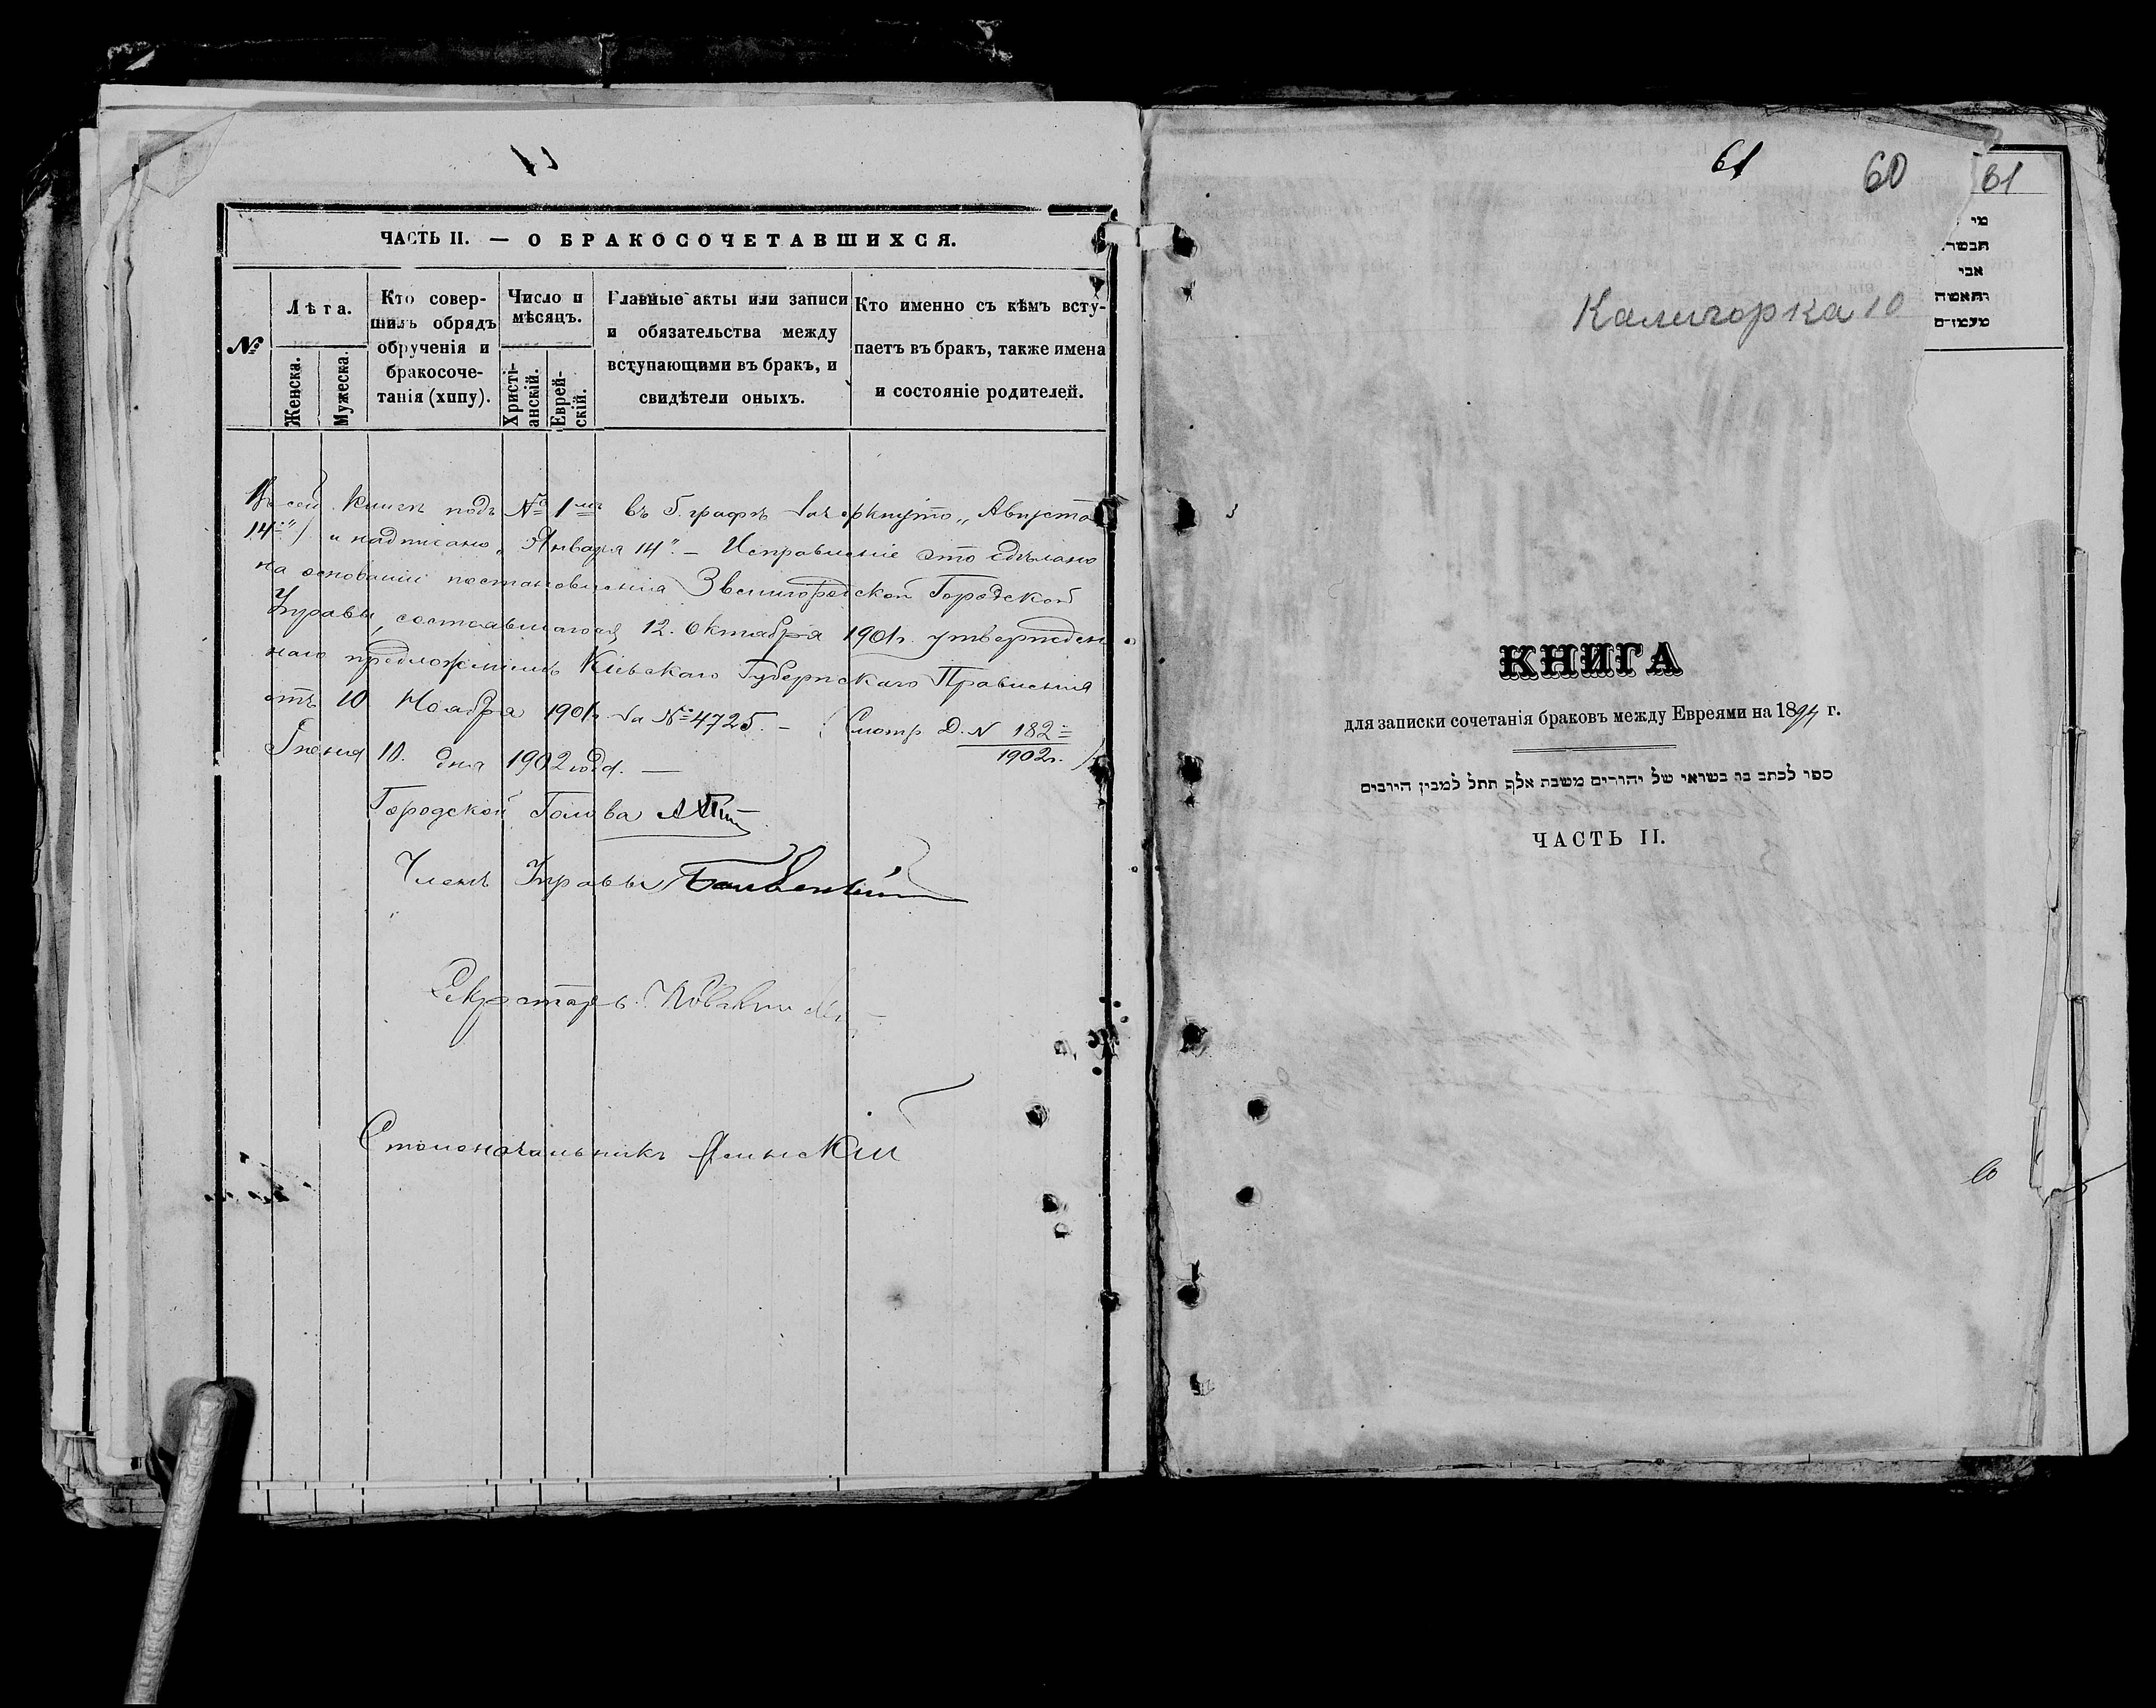 ЧАСТЬ II. — О БРАКОСОЧЕТАВШИХСЯ.
№
Лѣта.
Женска.
Мужеска.
Кто совер-
шилъ обрядъ
обрученія и
бракосоче-
танія (хипу).
Число и
мѣсяцъ.
Христі-
анскій.
Еврей-
скій.
Главные акты или записи
и обязательства между
вступающими въ бракъ, и
свидѣтели оныхъ.
Кто именно съ кѣмъ всту-
паетъ въ бракъ, также имена
и состояніе родителей.
Въ сей книгѣ подъ № 1мъ въ 5. графѣ зачеркнуто „Августа
14" и надписано „Января 14". — Исправленіе это сдѣлано
на основаніи постановленія Звенигородской Городской
Управы, состоявшагося 12. Октября 1901г. утвержден
наго предложеніемъ Кіевскаго Губернскаго Правленія
отъ 10 Ноября 1901г. за № 4725. — (Смотр. Д. N 182
1902г.)
10. дня 1902 года. —
Городской Голова
Членъ Управы
Секретарь
Столоначальникъ
61
60
61
מי
אבי
Калигорка 10
КНИГА
для записки сочетанія браковъ между Евреями на 1894 г.
ספר לכתב בו בשואי של יהורים משבת אלף תתל למבין הירבים
ЧАСТЬ II.